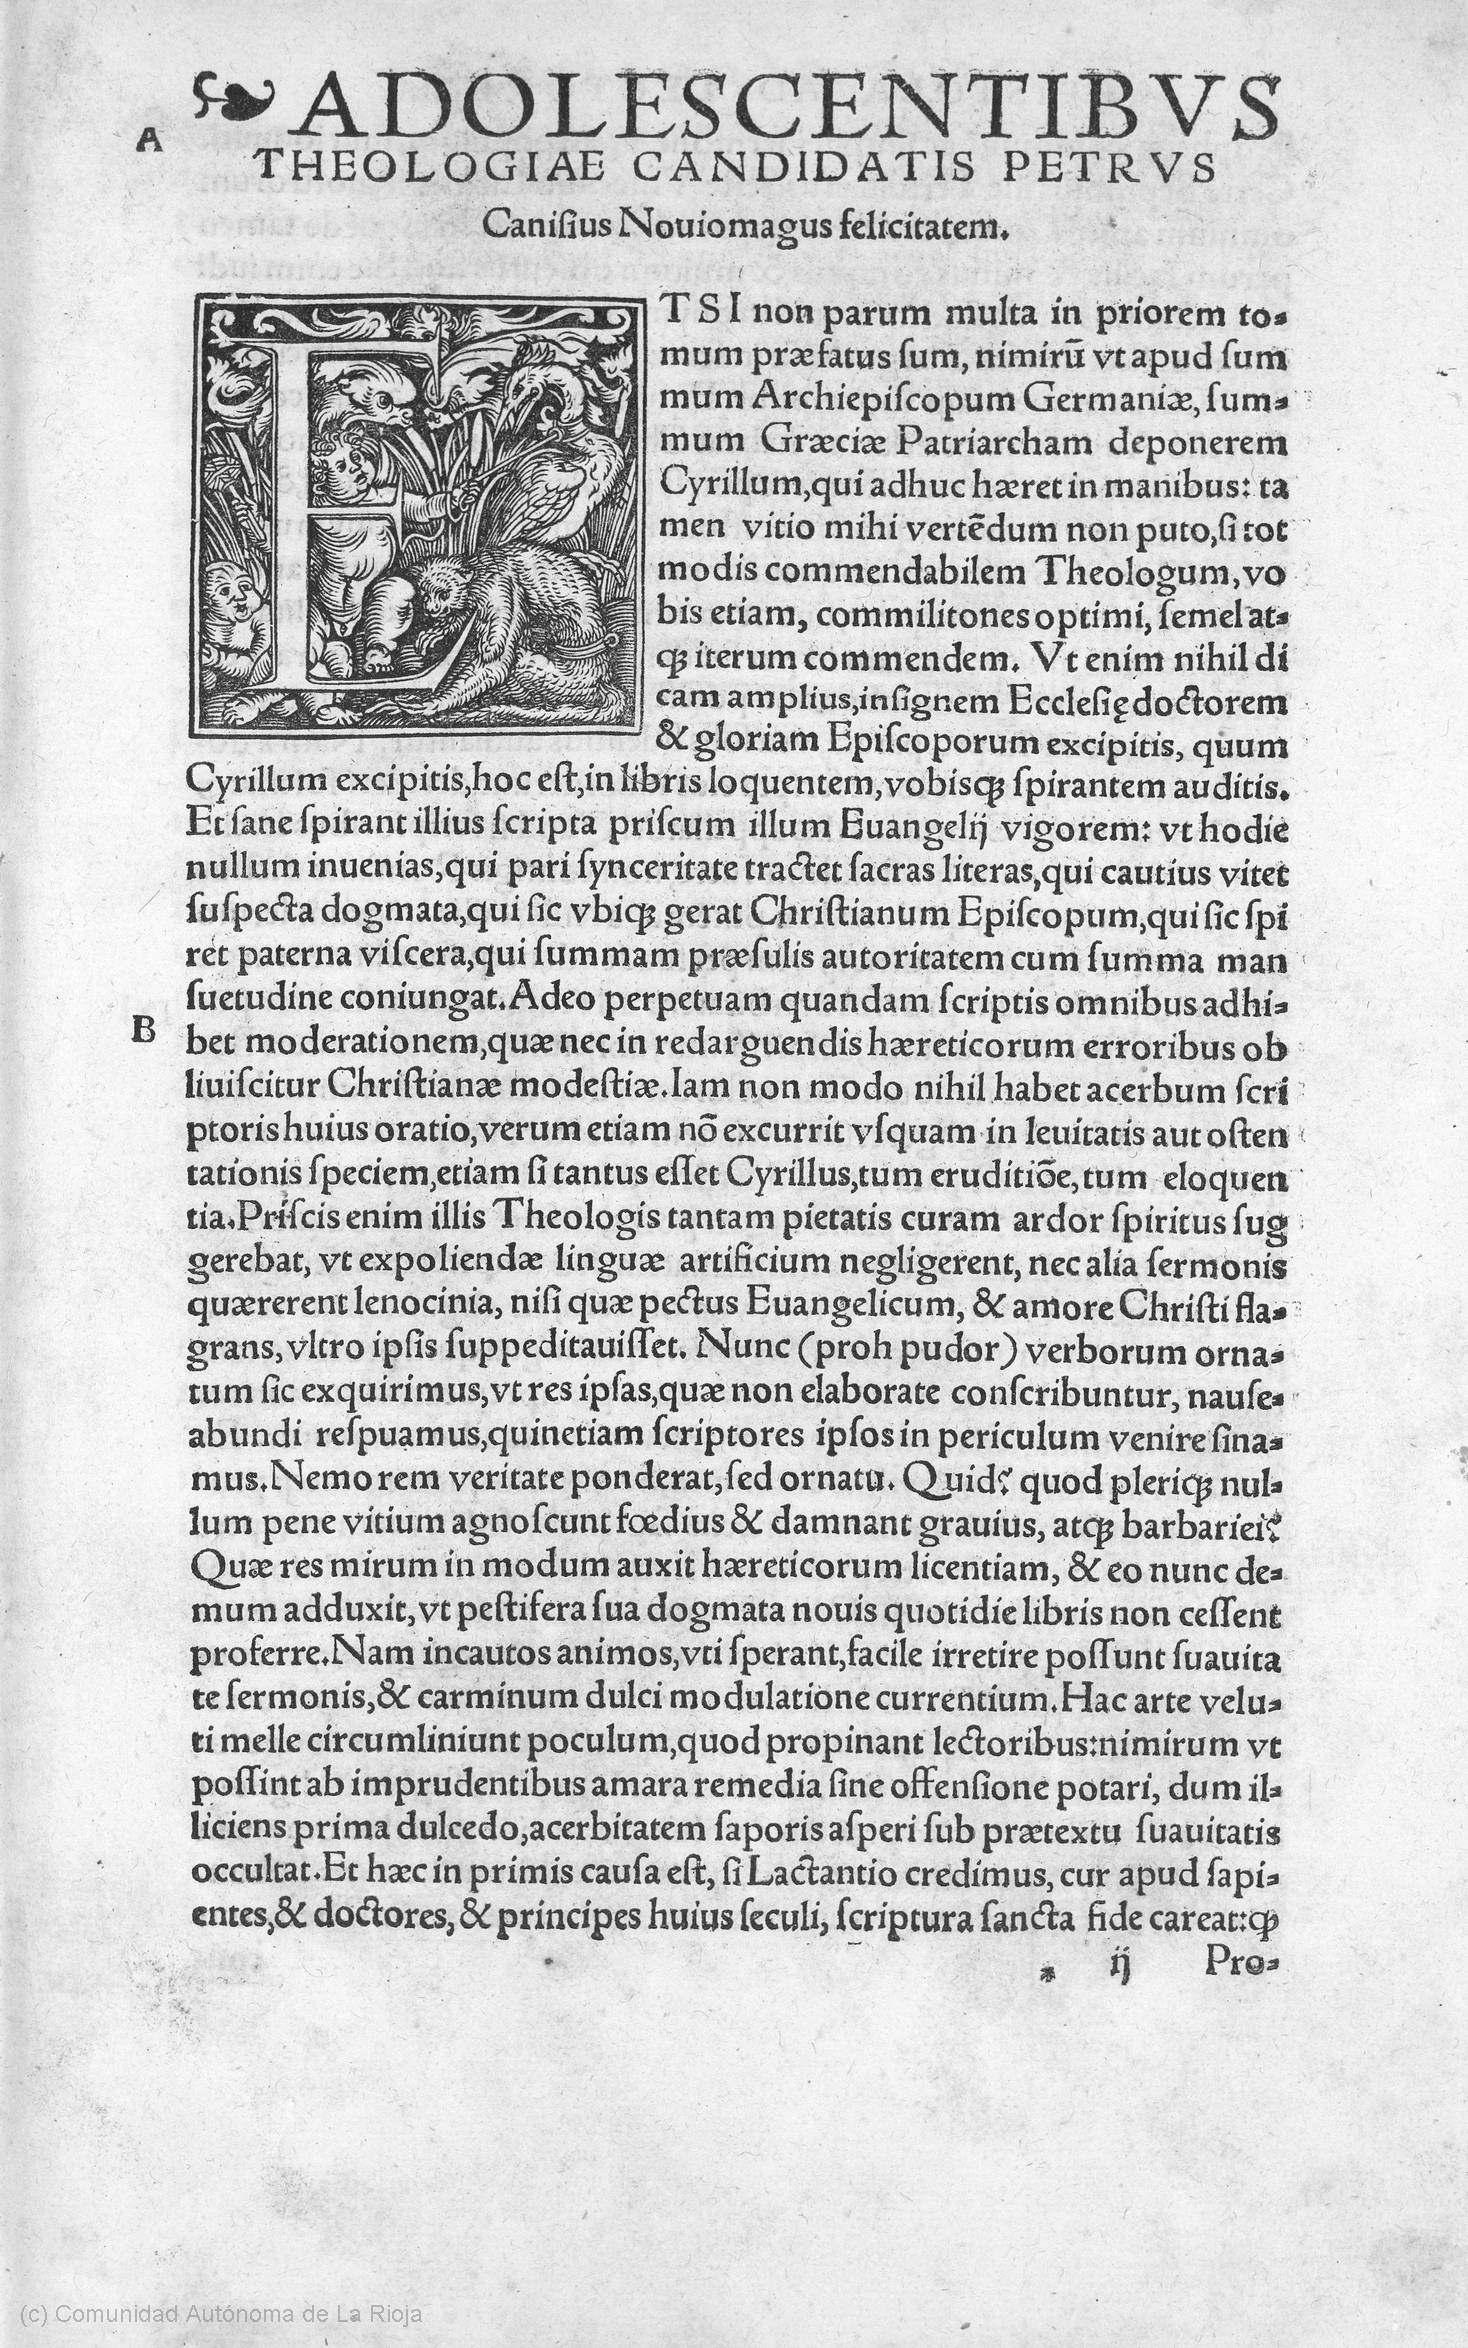 ❧ ADOLESCENTIBVS
A
THEOLOGIAE CANDIDATIS PETRVS
Caniſius Nouiomagus felicitatem.
ETSI non parum multa in priorem to-
mum præfatus ſum, nimirū vt apud ſum
mum Archiepiſcopum Germaniæ, ſum-
mum Græciæ Patriarcham deponerem
Cyrillum, qui adhuc hæret in manibus: ta
men vitio mihi vertēdum non puto, ſi tot
modis commendabilem Theologum, vo
bis etiam, commilitones optimi, ſemel at-
qꝫ iterum commendem. Vt enim nihil di
cam amplius, inſignem Eccleſię doctorem
& gloriam Epiſcoporum excipitis, quum
Cyrillum excipitis, hoc eſt, in libris loquentem, vobisqꝫ ſpirantem auditis.
Et ſane ſpirant illius ſcripta priſcum illum Euangelij vigorem: vt hodie
nullum inuenias, qui pari ſynceritate tractet ſacras literas, qui cautius vitet
ſuſpecta dogmata, qui ſic vbiqꝫ gerat Chriſtianum Epiſcopum, qui ſic ſpi
ret paterna viſcera, qui ſummam præſulis autoritatem cum ſumma man
ſuetudine coniungat. Adeo perpetuam quandam ſcriptis omnibus adhi-
B
bet moderationem, quæ nec in redarguendis hæreticorum erroribus ob
liuiſcitur Chriſtianæ modeſtiæ. Iam non modo nihil habet acerbum ſcri
ptoris huius oratio, verum etiam nō excurrit vſquam in leuitatis aut oſten
tationis ſpeciem, etiam ſi tantus eſſet Cyrillus, tum eruditiōe, tum eloquen
tia. Priſcis enim illis Theologis tantam pietatis curam ardor ſpiritus ſug
gerebat, vt expoliendæ linguæ artificium negligerent, nec alia ſermonis
quærerent lenocinia, niſi quæ pectus Euangelicum, & amore Chriſti fla-
grans, vltro ipſis ſuppeditauiſſet. Nunc (proh pudor) verborum orna-
tum ſic exquirimus, vt res ipſas, quæ non elaborate conſcribuntur, nauſe-
abundi reſpuamus, quinetiam ſcriptores ipſos in periculum venire ſina-
mus. Nemo rem veritate ponderat, ſed ornatu. Quid? quod pleriqꝫ nul-
lum pene vitium agnoſcunt fœdius & damnant grauius, atqꝫ barbariei?
Quæ res mirum in modum auxit hæreticorum licentiam, & eo nunc de-
mum adduxit, vt peſtifera ſua dogmata nouis quotidie libris non ceſſent
proferre. Nam incautos animos, vti ſperant, facile irretire poſſunt ſuauita
te ſermonis, & carminum dulci modulatione currentium. Hac arte velu-
ti melle circumliniunt poculum, quod propinant lectoribus: nimirum vt
poſſint ab imprudentibus amara remedia ſine offenſione potari, dum il-
liciens prima dulcedo, acerbitatem ſaporis aſperi ſub prætextu ſuauitatis
occultat. Et hæc in primis cauſa eſt, ſi Lactantio credimus, cur apud ſapi-
entes, & doctores, & principes huius ſeculi, ſcriptura ſancta fide careat: qꝫ
* ij Pro-
(c) Comunidad Autónoma de La Rioja